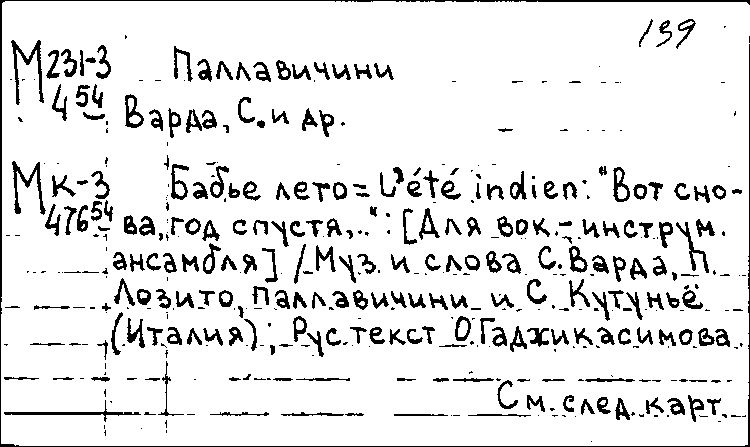 139
М231-3 Паллавичини
4 54 Варда, С. и др.
МК-3 Бабье лето = L'été indien: "Вот сно-
476 54 ва, год спустя,..": [Для вок.-инструм.
ансамбля] / Муз. и слова С. Варда, П.
Лозито, Паллавичини и С. Кутуньё
(Италия); Рус. текст О. Гаджикасимова.
См. след. карт.